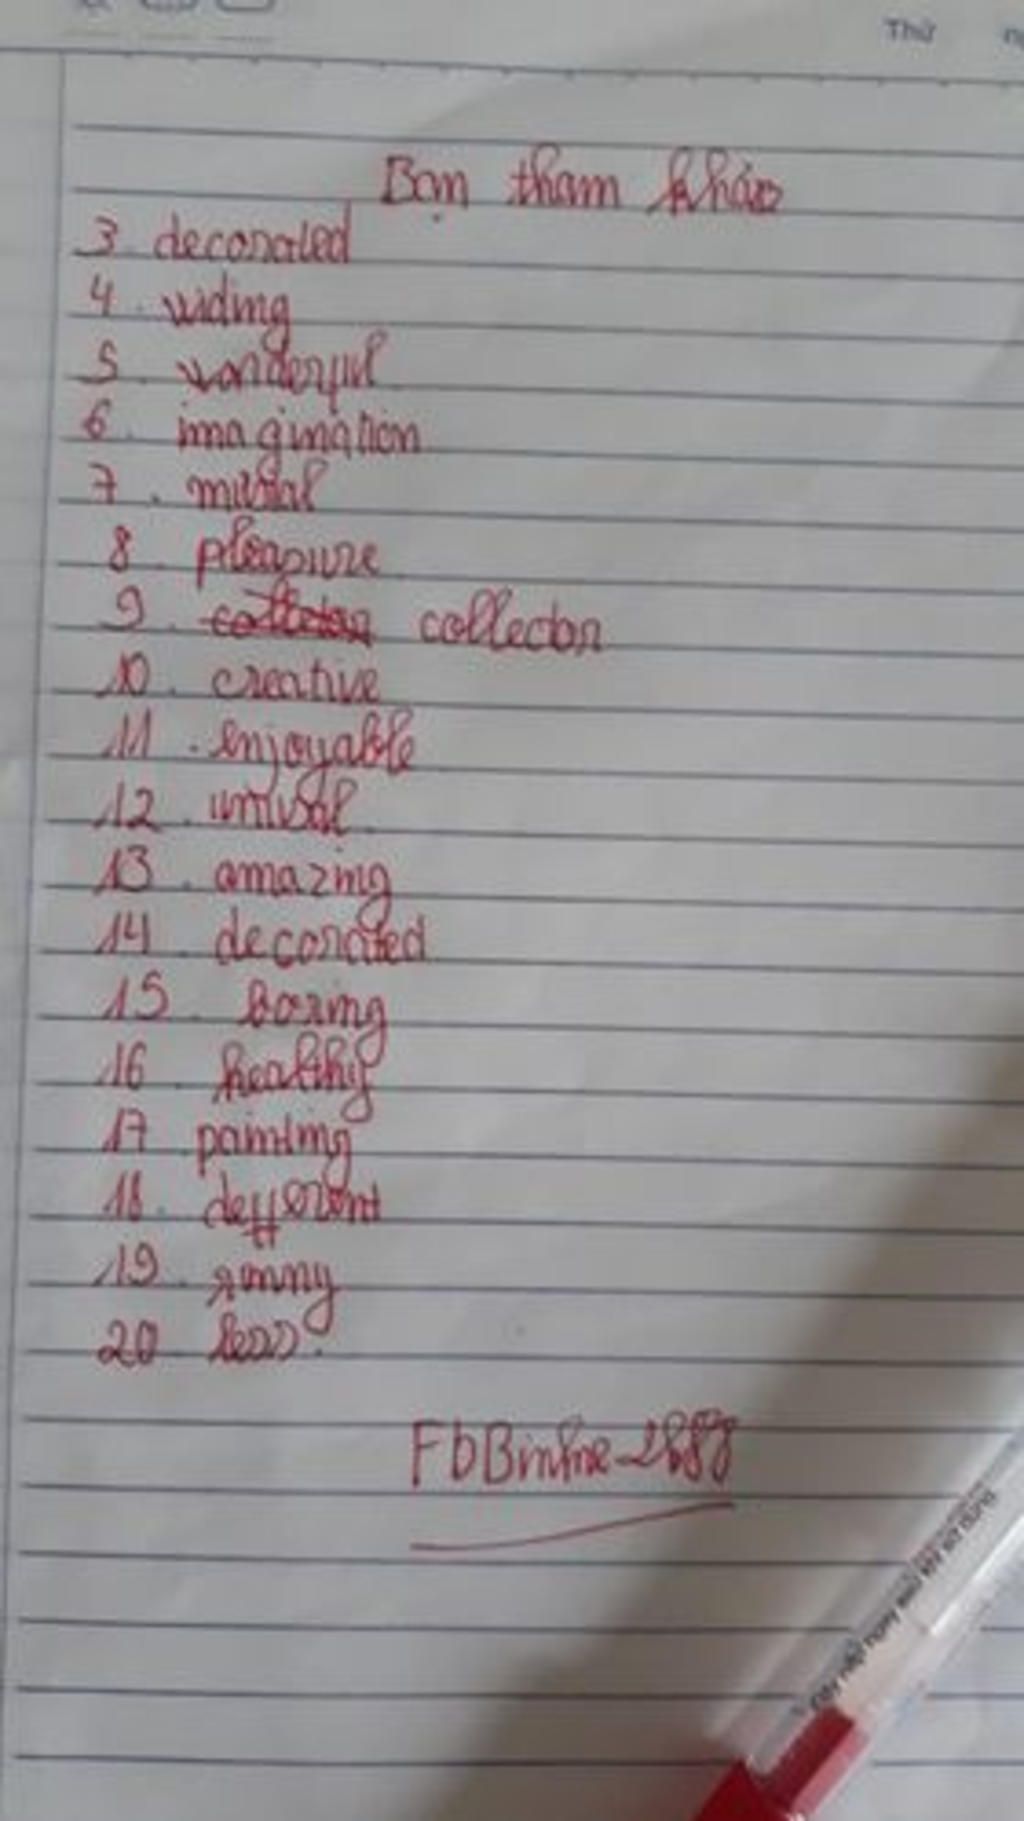 Thứ
Bạn tham khảo
3. decorated
4. riding
5. wonderful
6. imagination
7.
8. pleasure
9. collector
10. creative
11. enjoyable
12. unusal
13. amazing
14. decorated
15. boring
16. healthy
17. painting
18. defferent
19.
20. less.